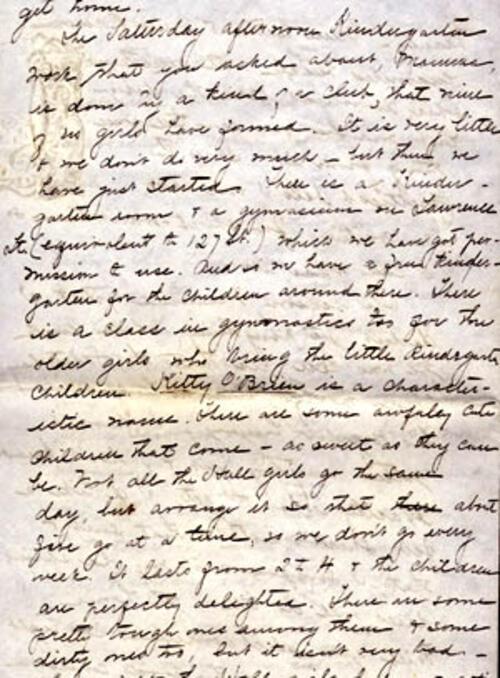 get home.
The Saturday afternoon Kindergarten
work that you asked about, Mamma,
is done in a kind of a club, that nine
of us girls have formed. It is very little
& we don't do very much - but then we
have just started. There is a Kinder-
garten room & a gymnasium on Lawrence
St. (equivalent to 127 St.) which we have got per-
mission to use. And so we have a free Kinder-
garten for the children around there. There
is a class in gymnastics too for the
older girls who bring the little Kindergarten
children. Kitty O'Brien is a character-
istic name. There are some awfully cute
children that come - as sweet as they can
be. Not all the girls go the same
day, but arrange it so that there about
five go at a time, so we don't go every
week. It lasts from 2 to 4 & the children
are perfectly delighted. There are some
pretty tough ones among them & some
dirty ones too, but it isn't very bad -